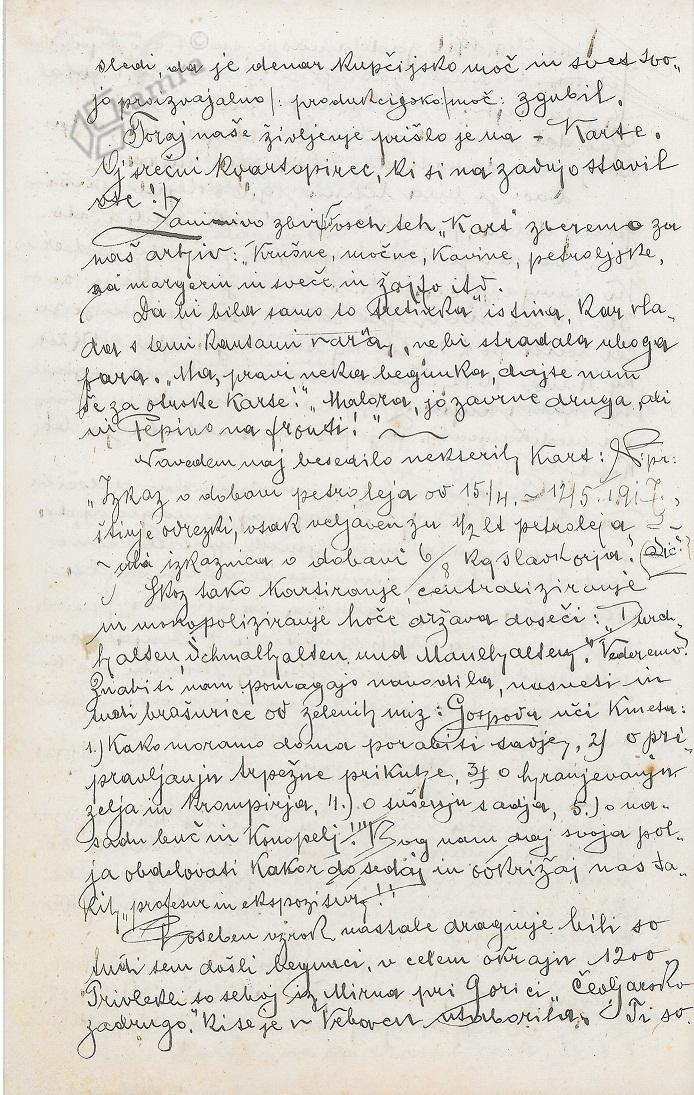 sledi, da je denar kupčijsko moč in svet svo-
jo proizvajalno /: produkcijsko/moč: zgubil.
Toraj naše življenje prišlo je na - Karte.
Oj srečni kvartopirec, ki si na zadnjo stavil
vse!!
Zanimivo zbirko vseh teh "Kart" zberemo za
naš arhiv: "Krušne, močne, Kavine, petrolejske,
za margerin in sveče in žajfo itd.
Da bi bila samo to "tretinka" istina, kar vla-
da s temi kartami vara, ne bi stradala uboga
para. "Ma, pravi neka begunka, dajte nam
še za otroke karte!" "Malora, jo zavrne druga, ali
ni Pepino na fronti!"
Navedem naj besedilo nekterih Kart: N.pr:
"Izkaz o dobavi petroleja od 15./4. - 14/5. 1917.,
štirje odrezki, vsak veljaven za 1/2 lt petroleja -
ali izkaznica o dobavi 6/8 kg sladkorja."
Skoz tako kartiranje, centraliziranje
in monopoliziranje hoče država doseči: "Durch-
halten, Schmalhalten und Maulhalten". Vederemo!
Znabiti nam pomagajo navodila, nasveti in
tudi brašurice od zelenih miz: Gospoda uči kmeta:
1.) Kako moramo doma porabiti sadje, 2) o pri-
pravljanju trpežne prikuhe, 3) o hranjevanju
zelja in krompirja, 4.) o sušenju sadja, 5.) o na-
sadu buč in konopelj!!! Bog nam daj svoja pol-
ja obdelovati kakor do sedaj in odkrižaj nas ta-
kih "profesur in ekspozitur"!!
Poseben vzrok nastale draginje bili so
tudi sem došli begunci, v celem okraju 1200.
Privlekli so seboj iz Mirna pri Gorici "Čevljarsko
zadrugo", ki se je v Vebovcu utaborila. Ti so